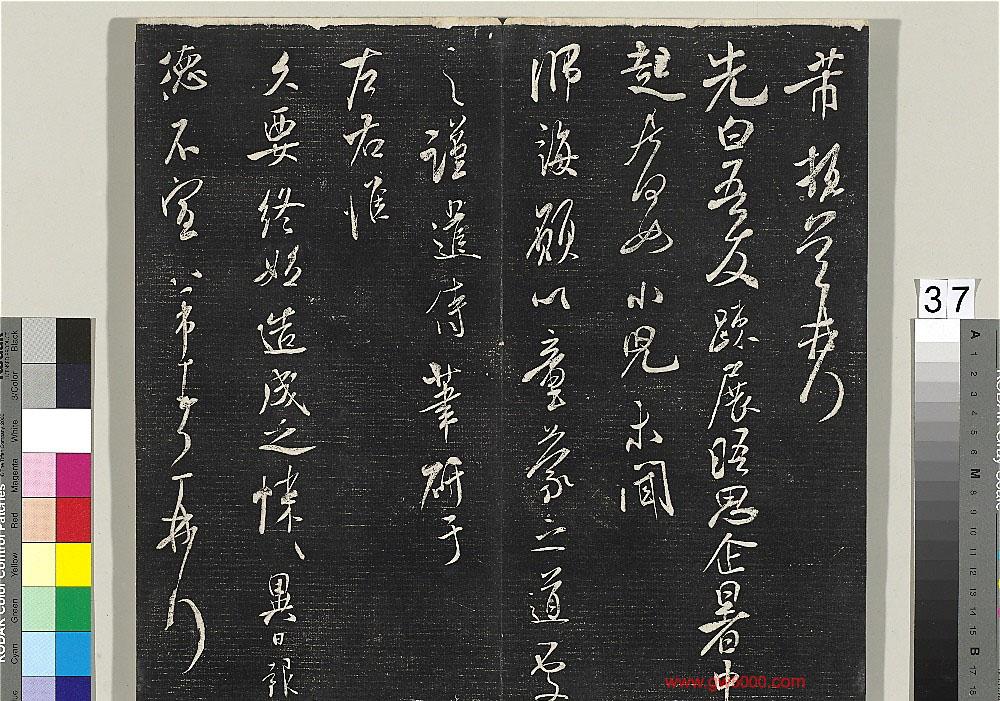 芾頓首再拜
先白吾友疎展晤思企暑中
起居何如小兒未聞
師誨願以童蒙之道受
之謹遣侍筆研于
左右惟
久要終始造成之悚悚異日報
德不宣芾頓首再拜
37
www.gw6000.com
KODAK Color Control Patches
Black
3/Color
White
Magenta
Red
Yellow
Green
Cyan
A 1 2 3 4 5 6 M 8 9 10 11 12 13 14 15 B 17 18